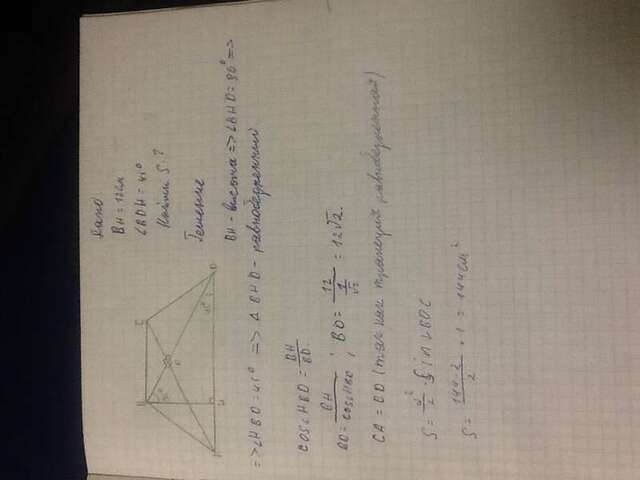 Дано
BH = 12см
∠BDH = 45°
Найти S - ?
Решение
BH - высота => ∠BHD = 90° =>
=> ∠HBD = 45° => △ BHD - равнобедренный
cos∠HBD = BH/BD
BD = BH/cos∠HBD ; BD = 12/(1/√2) = 12√2.
CA = BD (так как трапеция равнобедренная)
S = d²/2 · Sin∠BOC
S = 144·2/2 · 1 = 144см²